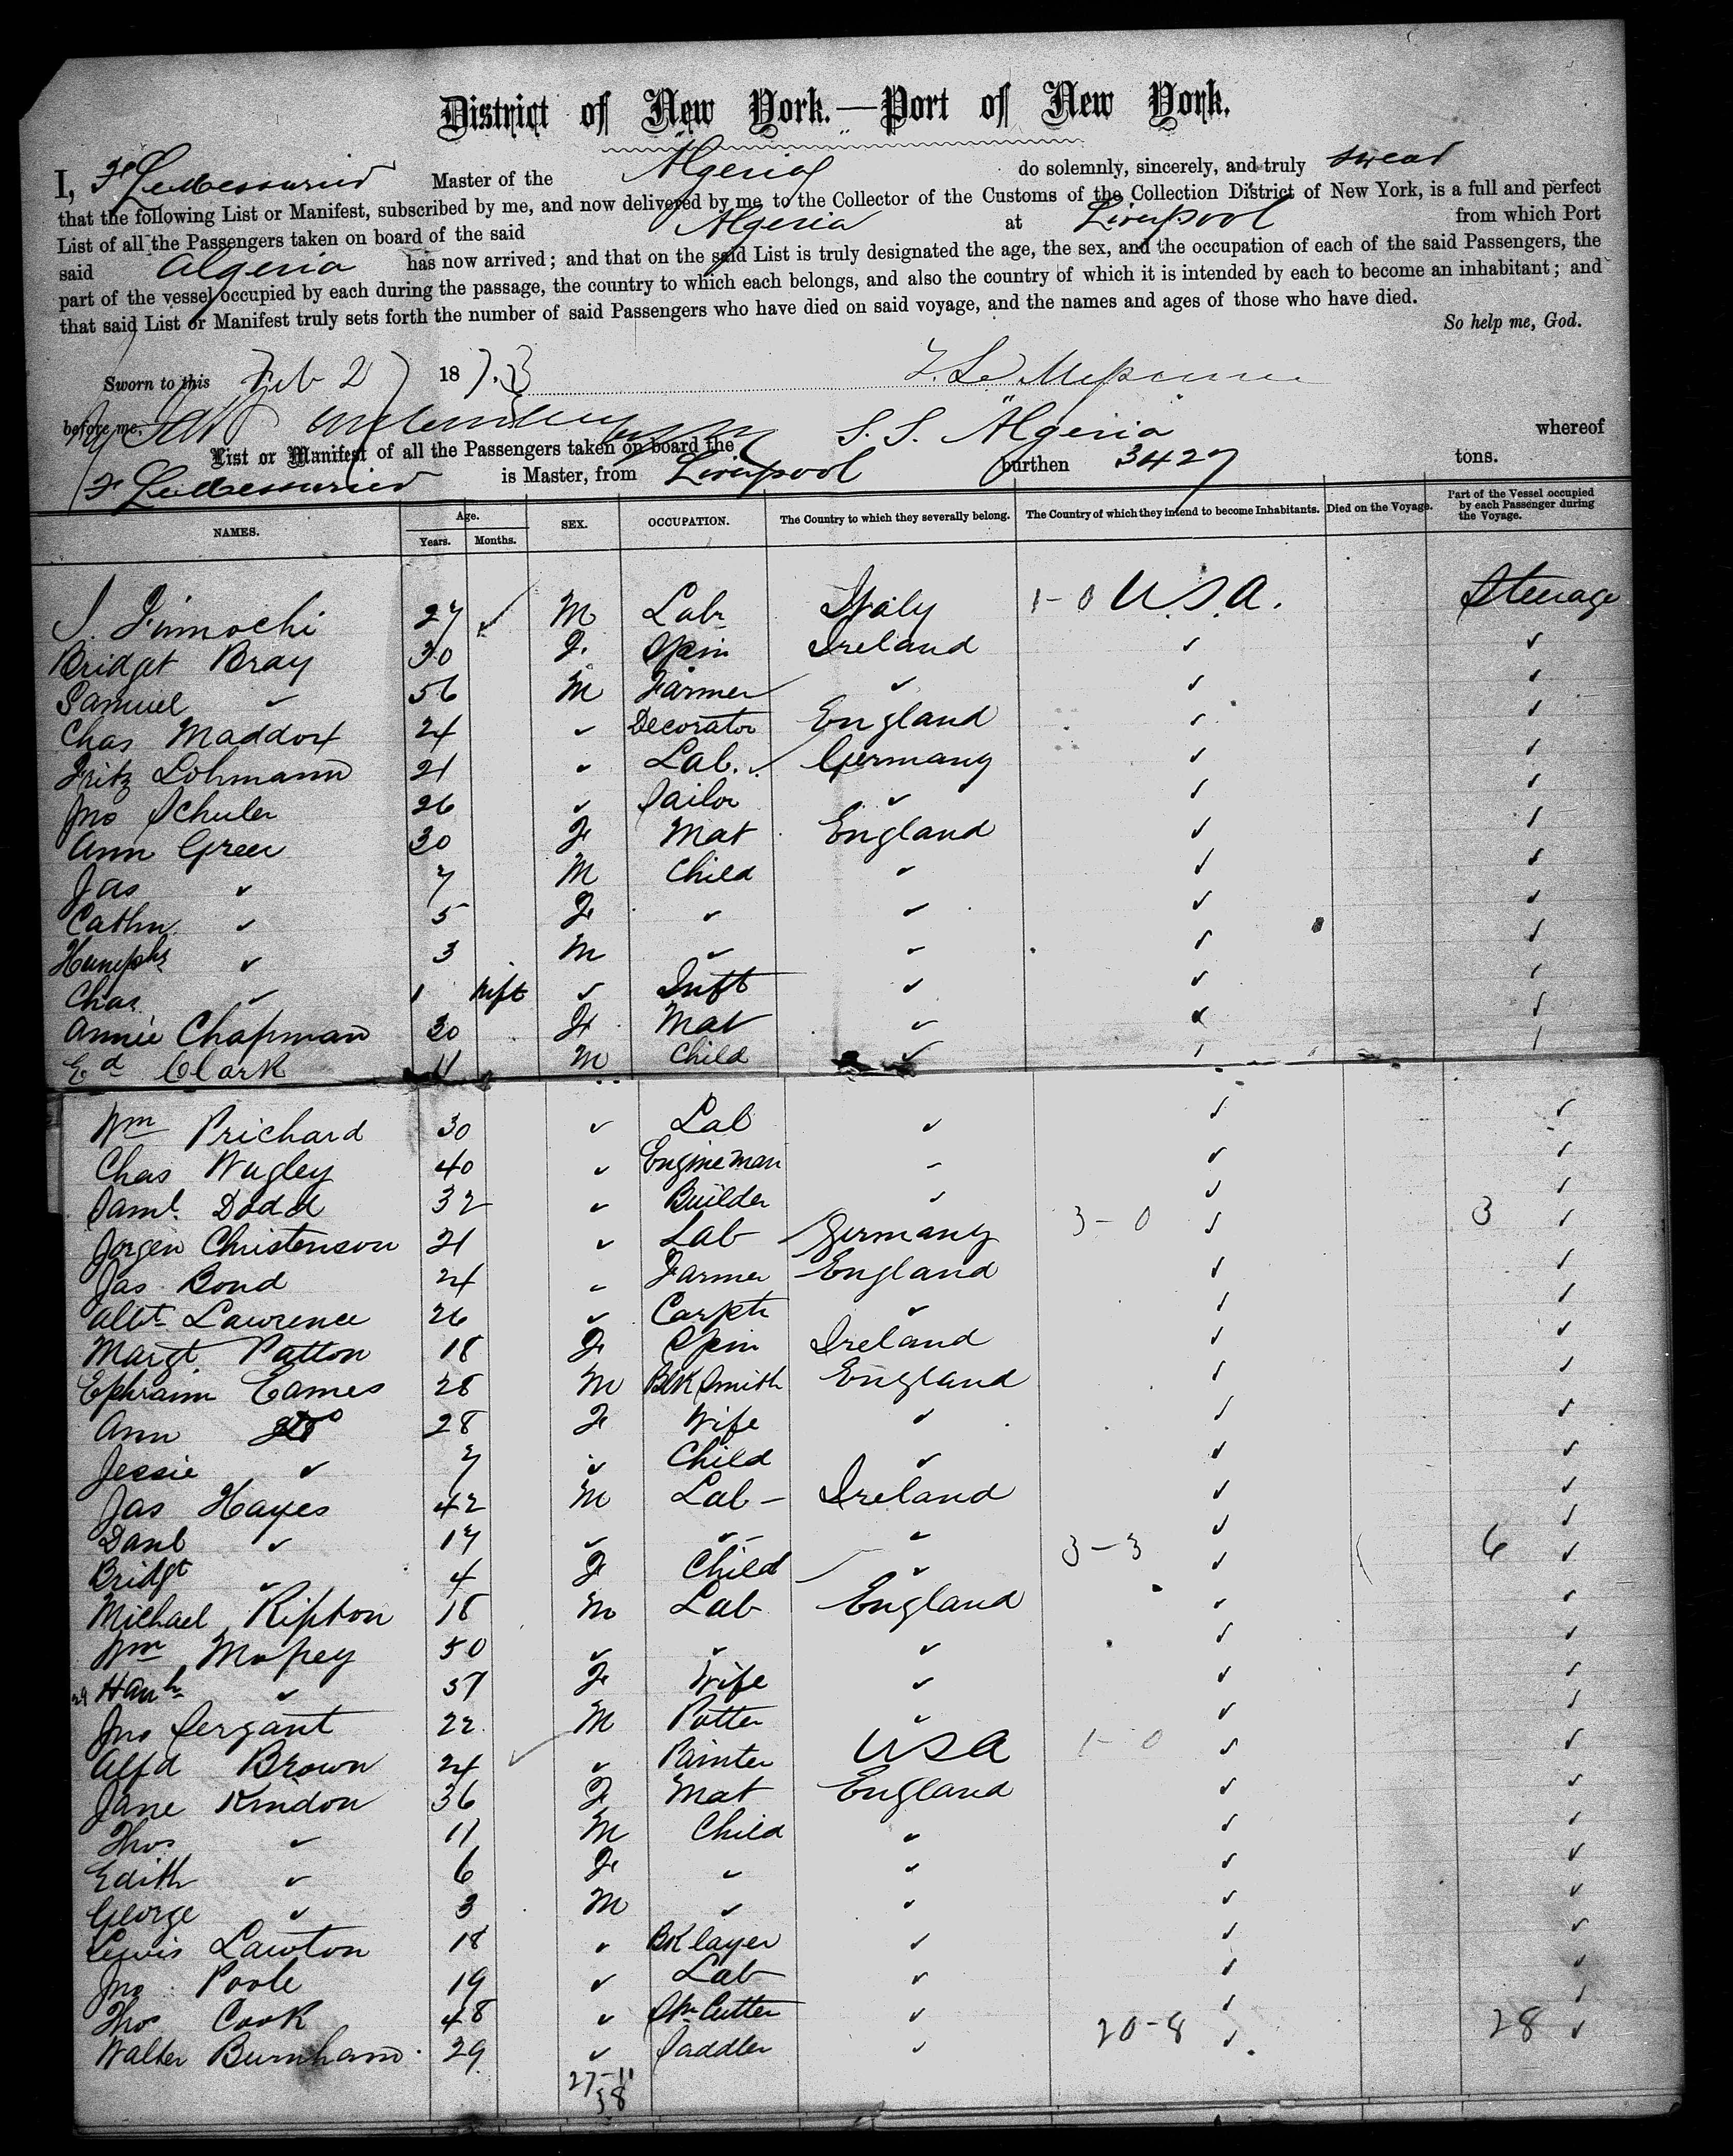 District of New York.—Port of New York.
I, F LeMessurier Master of the "Algeria" do solemnly, sincerely, and truly swear
that the following List or Manifest, subscribed by me, and now delivered by me to the Collector of the Customs of the Collection District of New York, is a full and perfect
List of all the Passengers taken on board of the said Algeria at Liverpool from which Port
said Algeria has now arrived; and that on the said List is truly designated the age, the sex, and the occupation of each of the said Passengers, the
part of the vessel occupied by each during the passage, the country to which each belongs, and also the country of which it is intended by each to become an inhabitant; and
that said List or Manifest truly sets forth the number of said Passengers who have died on said voyage, and the names and ages of those who have died.
So help me, God.
Sworn to this Feb 2 187.3
before me,
List or Manifest of all the Passengers taken on board the S.S. "Algeria" whereof
F LeMessurier is Master, from Liverpool burthen 3427 tons.
NAMES. Age. Years. Months. SEX. OCCUPATION. The Country to which they severally belong. The Country of which they intend to become Inhabitants. Died on the Voyage. Part of the Vessel occupied by each Passenger during the Voyage.
27 M Labr Italy 1-0 U.S.A. Steerage
Bridget Bray 30 F. Spin Ireland ✓ ✓
Samuel ✓ 56 M Farmer ✓ ✓ ✓
Chas Maddox 24 ✓ Decorator England ✓ ✓
Fritz Lohmann 21 ✓ Lab. Germany ✓ ✓
Jno Schuler 26 ✓ Sailor ✓ ✓ ✓
Ann Green 30 F Mat England ✓ ✓
Jas ✓ 7 M Child ✓ ✓ ✓
Cathn ✓ 5 F ✓ ✓ ✓ ✓
Humphy ✓ 3 M ✓ ✓ ✓ ✓
Chas ✓ 1 Inft ✓ Inft ✓ ✓ ✓
Annie Chapman 30 F Mat ✓ ✓ ✓
Ed Clark 11 M Child ✓ ✓ ✓
Wm Prichard 30 ✓ Lab ✓ ✓ ✓
Chas Wagley 40 ✓ Engine man ✓ ✓ ✓
Saml. Dodd 32 ✓ Builder ✓ ✓ ✓
Jorgen Christenson 21 ✓ Lab Germany 3-0 ✓ 3 ✓
Jas Bond 24 ✓ Farmer England ✓ ✓
Albt Lawrence 26 ✓ Carptr ✓ ✓ ✓
Margt Patton 18 F Spin Ireland ✓ ✓
Ephraim Eames 28 M Blk Smith England ✓ ✓
Ann do 28 F Wife ✓ ✓ ✓
Jessie ✓ 7 ✓ Child ✓ ✓ ✓
Jas Hayes 42 M Lab Ireland ✓ ✓
Danl ✓ 17 ✓ ✓ ✓ ✓ ✓
Bridgt ✓ 4 F Child ✓ 3-3 ✓ 6 ✓
Michael Ripton 18 M Lab England ✓ ✓
Wm 50 ✓ ✓ ✓ ✓ ✓
Hanh ✓ 51 F Wife ✓ ✓ ✓
Jno Sergant 22 M Potter ✓ ✓ ✓
Alfd Brown 24 ✓ Painter USA 1-0 ✓ ✓
Jane Kindon 36 F Mat England ✓ ✓
Thos ✓ 11 M Child ✓ ✓ ✓
Edith ✓ 6 F ✓ ✓ ✓ ✓
George ✓ 3 M ✓ ✓ ✓ ✓
Lewis Lawton 18 ✓ Bk layer ✓ ✓ ✓
Jno Poole 19 ✓ Lab ✓ ✓ ✓
Thos Cook 48 ✓ Stn Cutter ✓ ✓ ✓
Walter Burnham 29 ✓ Saddler ✓ 20-8 ✓ 28 ✓
27-11
38